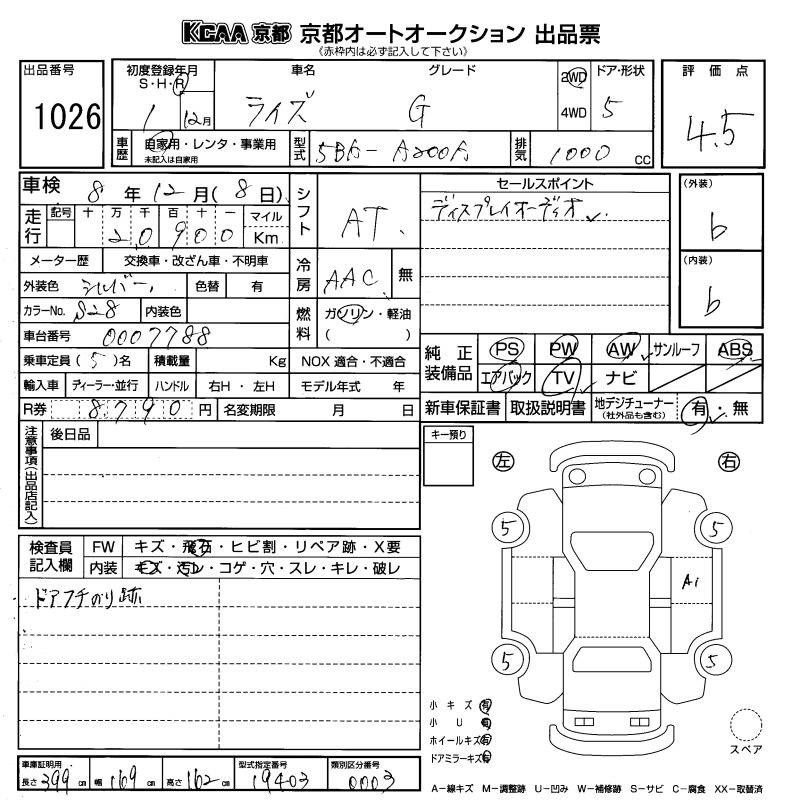 KCAA 京都 京都オートオークション 出品票
《赤枠内は必ず記入して下さい》
出品番号
1026
初度登録年月
S・H・R
1 12月
車名
ライズ
グレード
G
2WD
4WD
ドア・形状
5
評価点
4.5
車歴
自家用・レンタ・事業用
未記入は自家用
型式
5BA-A200A
排気
1000 cc
車検 8年12月(8日)
走行
記号 十 万 千 百 十 一 マイル
20900 Km
メーター歴 交換車・改ざん車・不明車
外装色 シルバー 色替 有
カラーNo. S28 内装色
車台番号 0007788
乗車定員(5)名 積載量 Kg
輸入車 ディーラー・並行 ハンドル 右H・左H
R券 8790円 名変期限 月 日
シフト AT
冷房 AAC 無
燃料 ガソリン・軽油
( )
NOX 適合・不適合
モデル年式 年
セールスポイント
ディスプレイオーディオ
(外装)
b
(内装)
b
純正装備品
PS PW AW サンルーフ ABS
エアバック TV ナビ
新車保証書 取扱説明書 地デジチューナー
(社外品も含む)
有・無
注意事項(出品店記入)
後日品
キー預り
左 右
検査員記入欄
FW キズ・飛石・ヒビ割・リペア跡・X要
内装 キズ・汚レ・コゲ・穴・スレ・キレ・破レ
ドアフチのり跡
5 5
A1
5 5
小キズ 有
小U 有
ホイールキズ 有
ドアミラーキズ 有
スペア
車庫証明用
長さ 399cm 幅 169cm 高さ 162cm
型式指定番号
19403
類別区分番号
0003
A−線キズ M−調整跡 U−凹み W−補修跡 S−サビ C−腐食 XX−取替済